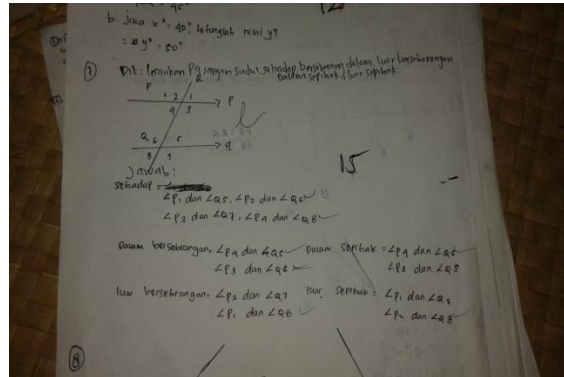 b. Jika x° = 40°, hitunglah nilai y?
= y° = 50°
7 Dit : Tentukan P2 sangan sudut sehadap berseberangan dalam, luar berseberangan
Dalam sepihak / luar sepihak.
P 2 1
4 3 P
Q 6 5
8 7 q
Jawab :
sehadap =
∠P1 dan ∠Q5, ∠P2 dan ∠Q6
∠P3 dan ∠Q7, ∠P4 dan ∠Q8
15
Dalam bersebrangan = ∠P4 dan ∠Q5 Dalam sepihak = ∠P4 dan ∠Q6
∠P3 dan ∠Q6 ∠P3 dan ∠Q5
luar bersebrangan = ∠P2 dan ∠Q7 luar sepihak = ∠P1 dan
∠P1 dan ∠Q8 ∠P2 dan ∠Q8
8